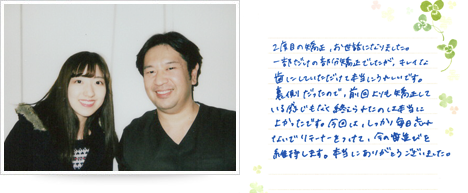 2度目の矯正、お世話になりました。
一部だけの部分矯正でしたが、キレイな
歯にしていただけて本当にうれしいです。
裏側だったので、前回よりも矯正して
いる感じもなく終えられたのは本当に
よかったです。今回は、しっかり毎日忘れ
ないでリテーナーをつけて、今の歯並びを
お維持します。本当にありがとうございました。